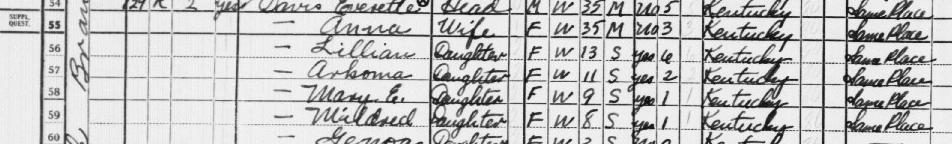 54 129 R 2 yes Davis Everette Head M W 35 M no 5 Kentucky Same Place
SUPPL. QUEST. 55 — Anna Wife F W 35 M no 3 Kentucky Same Place
56 — Lillian Daughter F W 13 S yes 6 Kentucky Same Place
57 — Arkoma Daughter F W 11 S yes 2 Kentucky Same Place
58 — Mary E. Daughter F W 9 S yes 1 Kentucky Same Place
59 — Mildred Daughter F W 8 S yes 1 Kentucky Same Place
60 — Daughter F W S